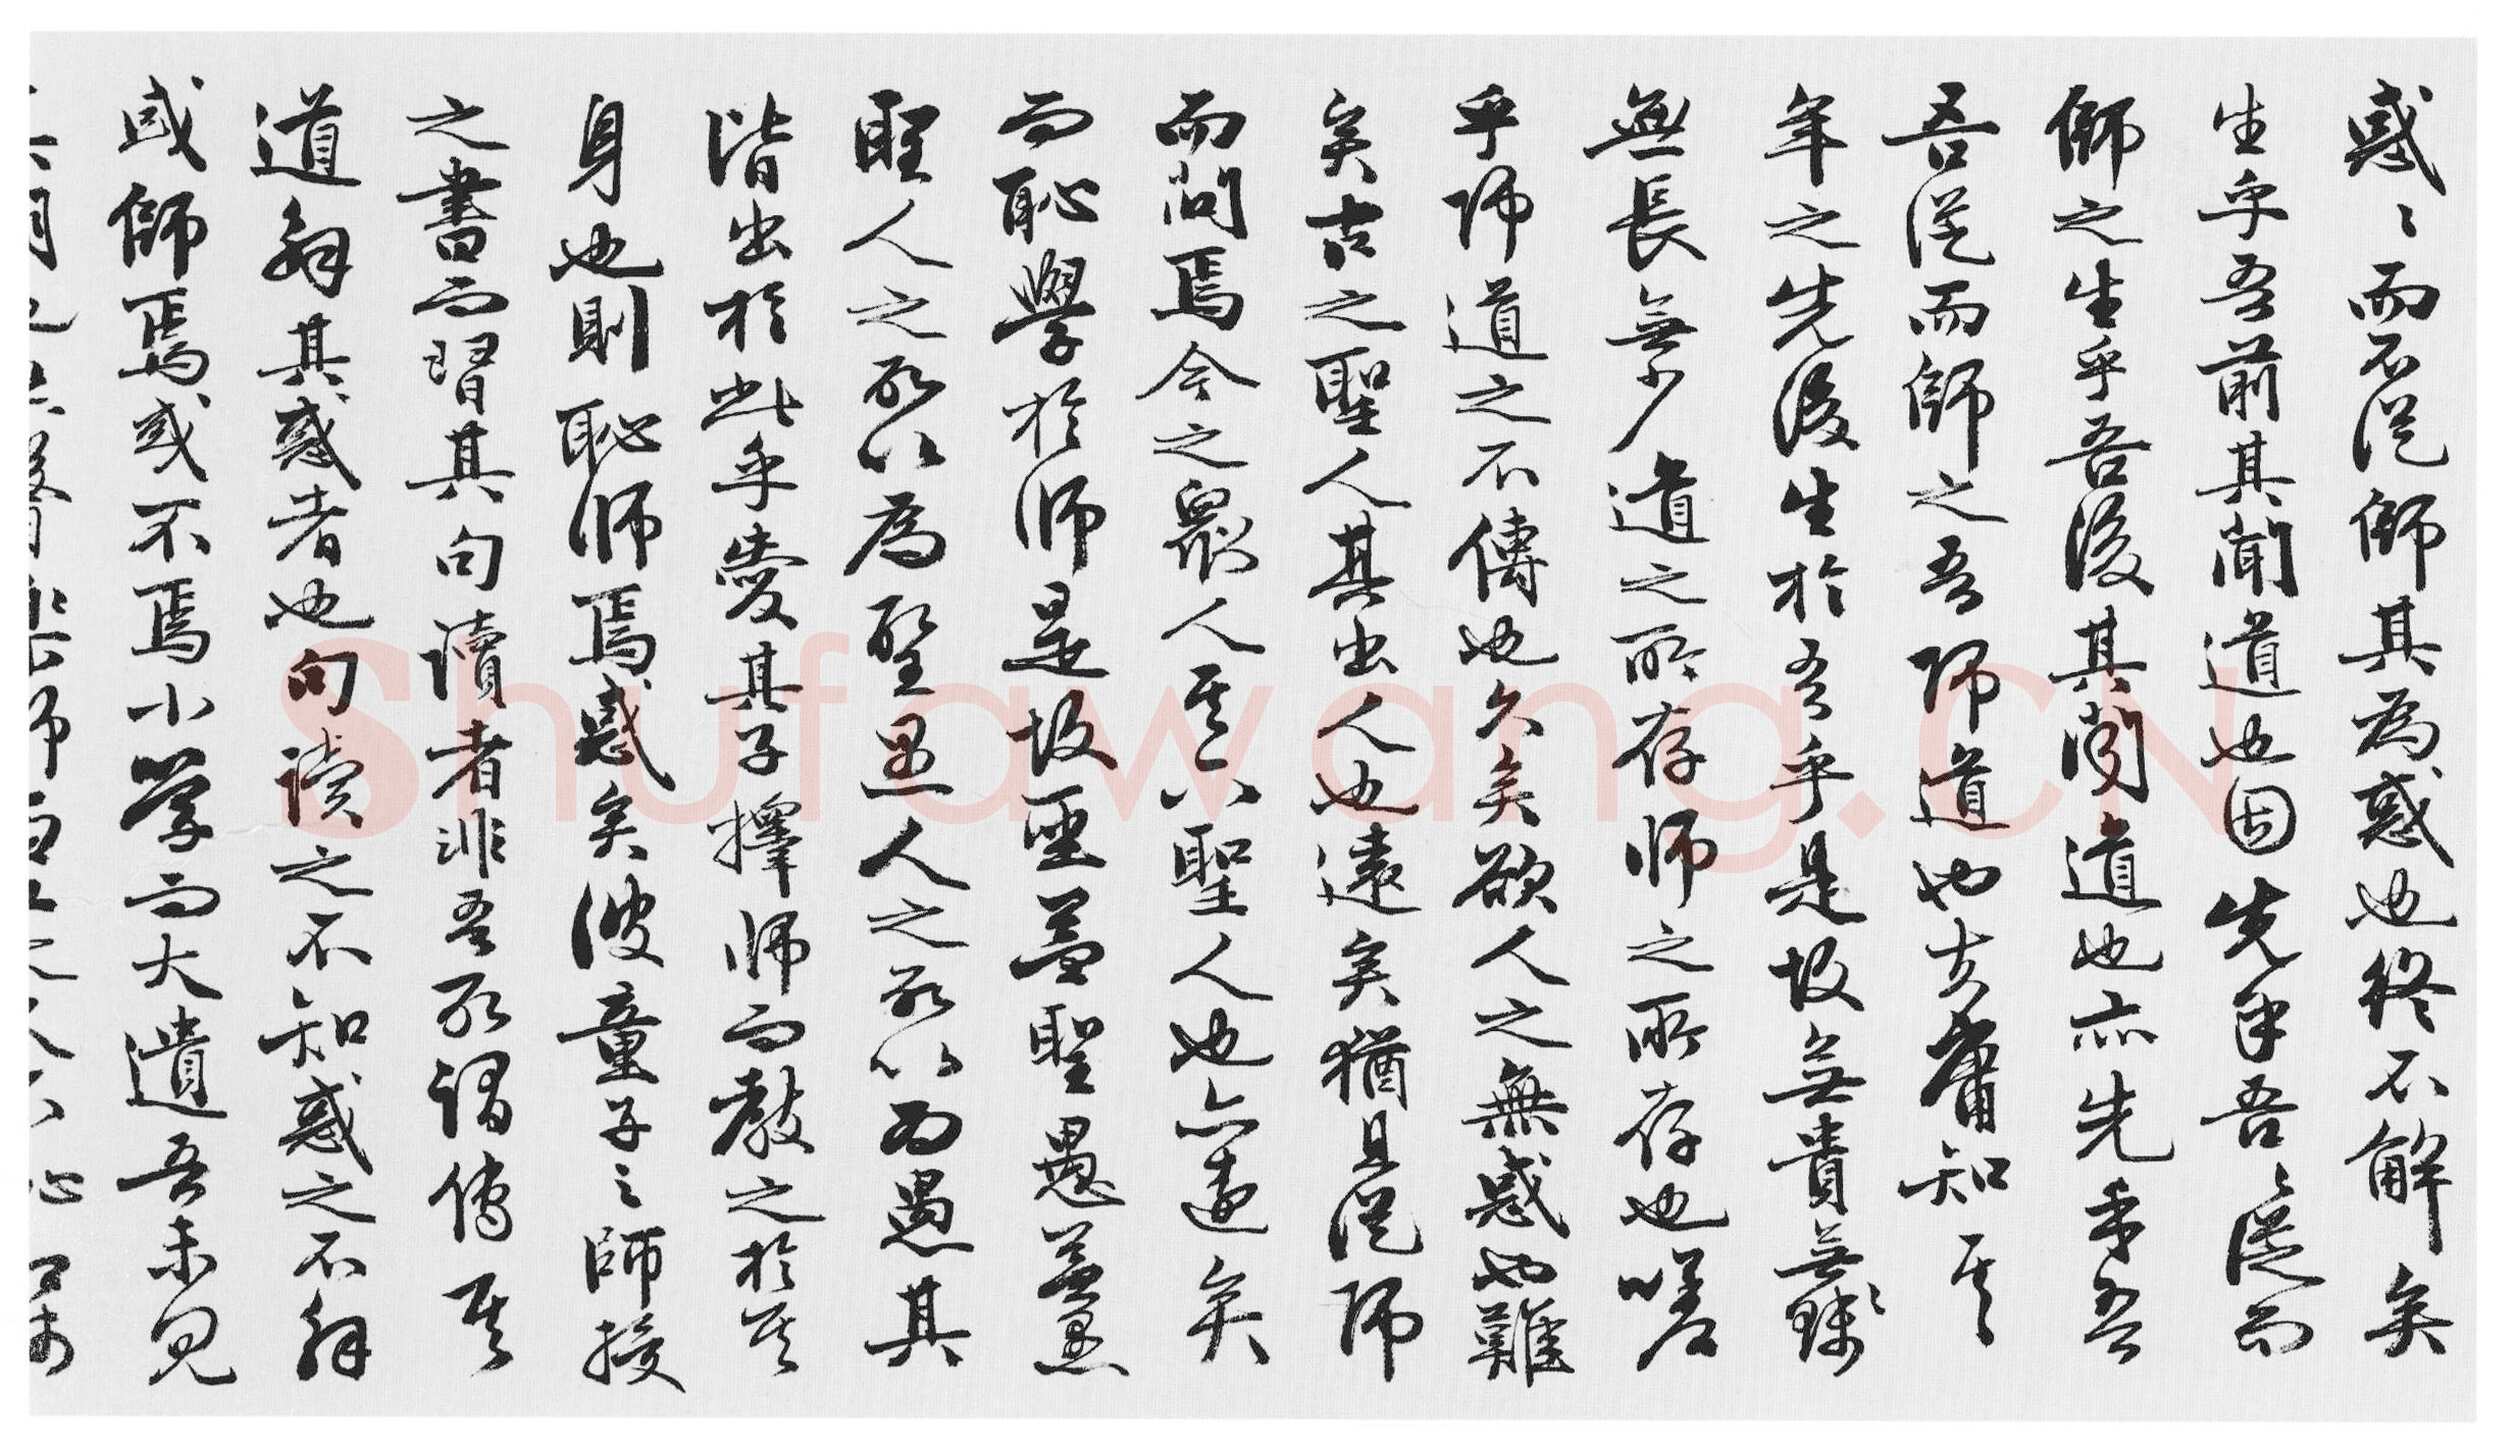 惑〻而不從師其為惑也終不解矣
生乎吾前其聞道也固先乎吾〻從而
師之生乎吾後其聞道也亦先乎吾
吾從而師之吾師道也夫庸知其
年之先後生於吾乎是故無貴無賤
無長無少道之所存師之所存也嗟
乎師道之不傳也久矣欲人之無惑也難
矣古之聖人其出人也遠矣猶且從師
而問焉今之眾人其下聖人也亦遠矣
而恥學於師是故聖益聖愚益愚
聖人之所以為聖愚人之所以為愚其
皆出於此乎愛其子擇師而教之於其
身也則恥師焉惑矣彼童子之師授
之書而習其句讀者非吾所謂傳其
道解其惑者也句讀之不知惑之不解
或師焉或不焉小學而大遺吾未見
Shufawang.CN